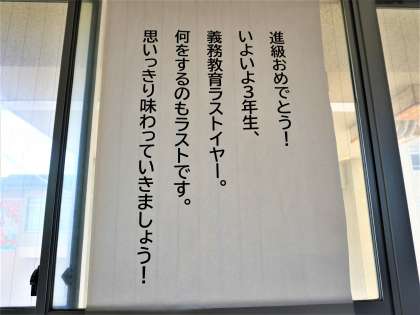 進級おめでとう！
いよいよ３年生、
義務教育ラストイヤー。
何をするのもラストです。
思いっきり味わっていきましょう！